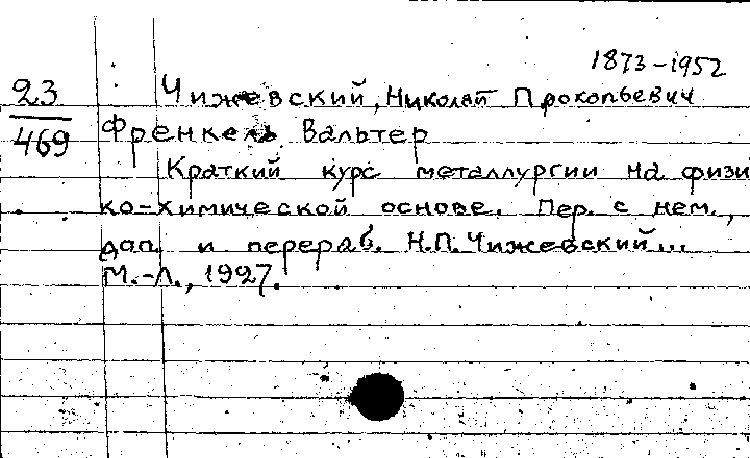 1873-1952
23
469
Чижевский, Николай Прокопьевич
Френкель Вальтер
Краткий курс металлургии на физи
ко-химической основе. Пер. с нем.,
доп. и перераб. Н.П. Чижевский...
М.-Л., 1927.